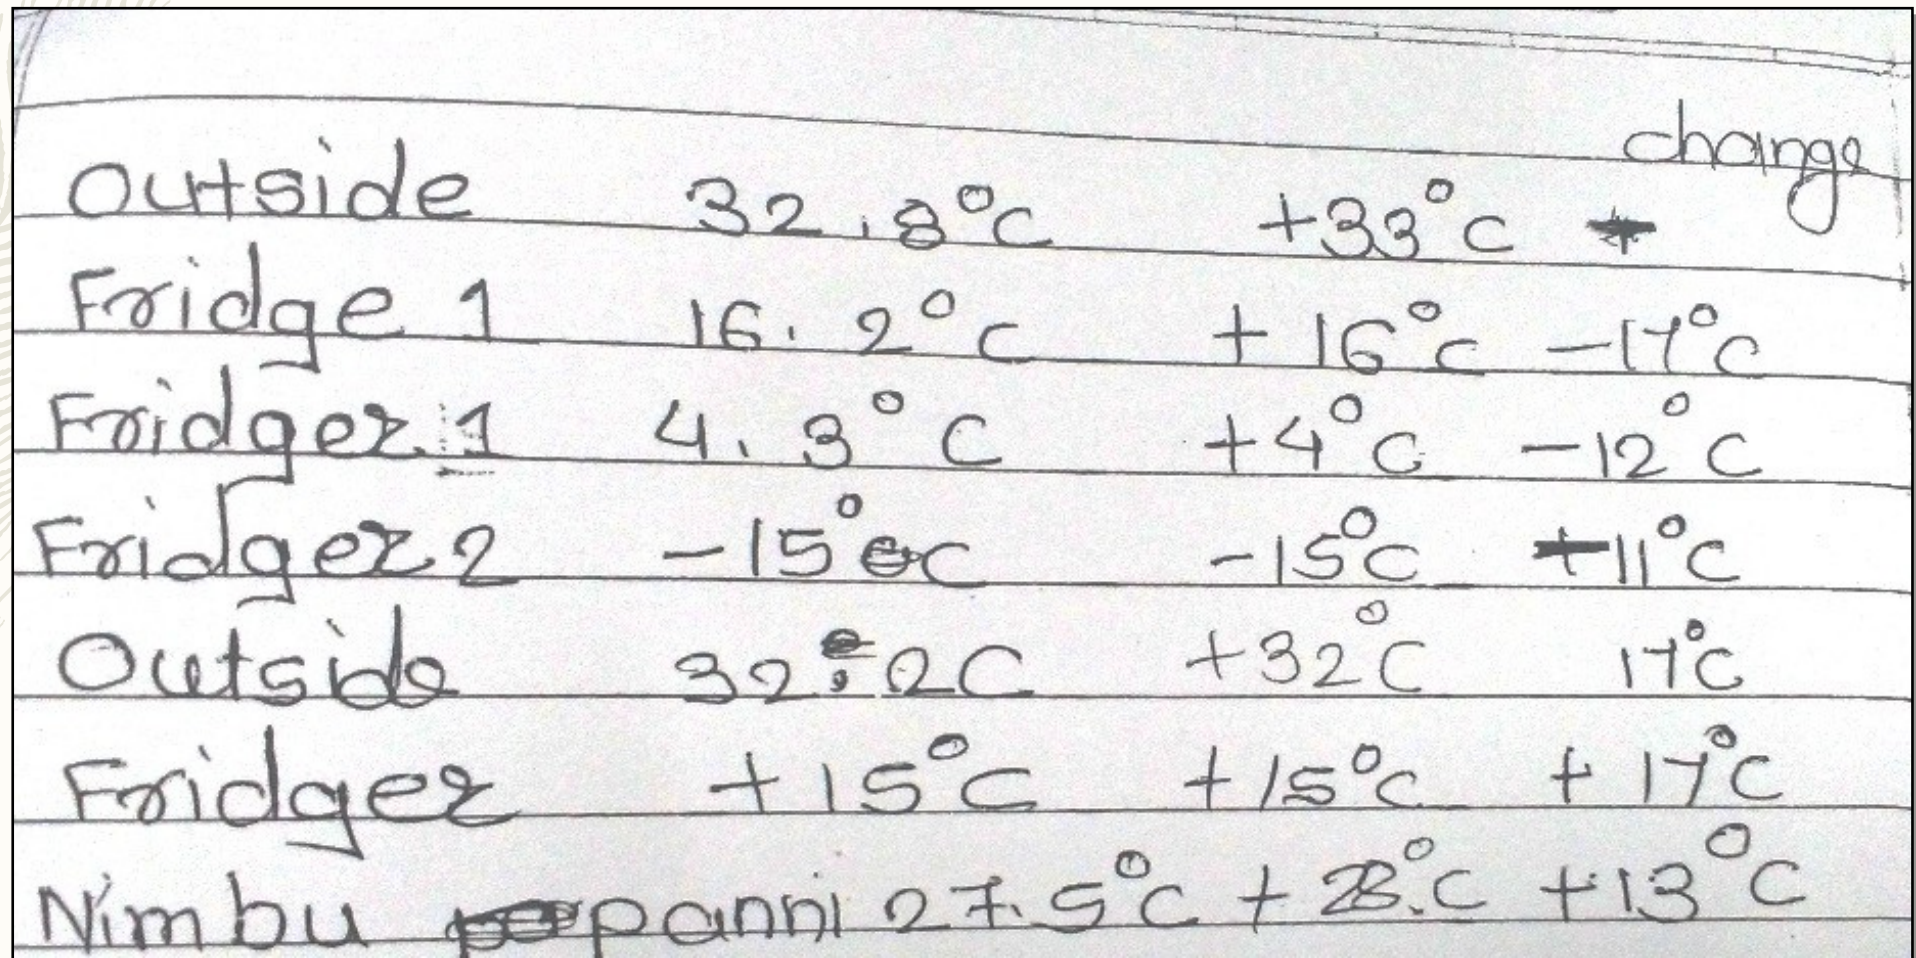 change
Outside 32.8°C +33°C
Fridge 1 16.2°C +16°C -17°C
Fridger 1 4.3°C +4°C -12°C
Fridger 2 -15°C -15°C +11°C
Outside 32.2C +32°C 17°C
Fridger +15°C +15°C +17°C
Nimbu panni 27.5°C +28°C +13°C